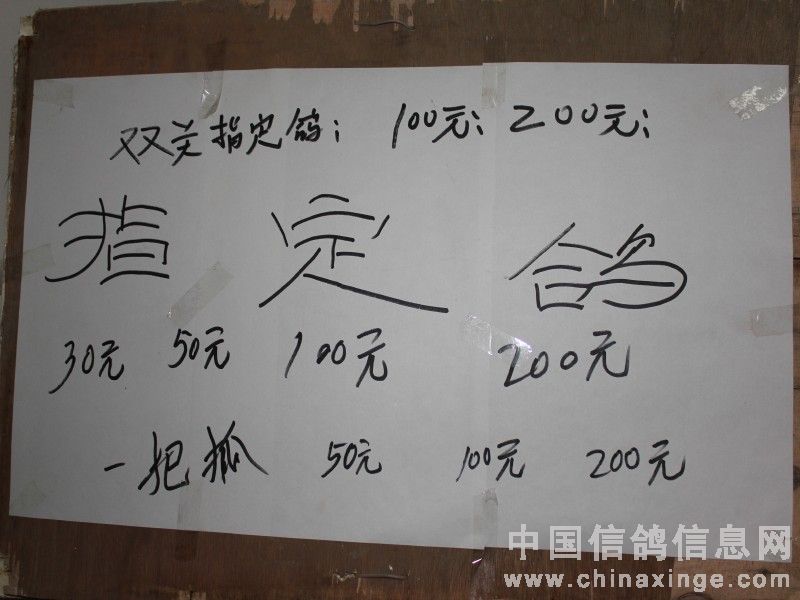 双关指定鸽：100元；200元；
指定鸽
30元 50元 100元 200元
一把抓 50元 100元 200元
中国信鸽信息网
www.chinaxinge.com